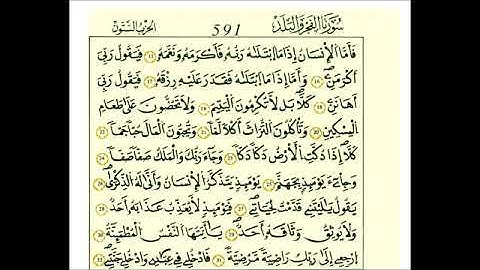 سُورَتَا الْفَجْرِ وَالْبَلَدِ 591 الحزب الستون
فَأَمَّا اَلِانسَٰنُ إِذَا مَا اَبْتَلَيٰهُ رَبُّهُۥ فَأَكْرَمَهُۥ وَنَعَّمَهُۥ ١٥ فَيَقُولُ رَبِّيَ
أَكْرَمَنِۦ ١٦ وَأَمَّا إِذَا مَا اَبْتَلَيٰهُ فَقَدَرَ عَلَيْهِ رِزْقَهُۥ ١٧ فَيَقُولُ رَبِّيَ
أَهَٰنَنِۦ ١٨ كَلَّا بَل لَّا تُكْرِمُونَ اَلْيَتِيمَ ١٩ وَلَا تَحُضُّونَ عَلَىٰ طَعَامِ
اِلْمِسْكِينِ ٢٠ وَتَأْكُلُونَ اَلتُّرَاثَ أَكْلًا لَّمًّا ٢١ وَتُحِبُّونَ اَلْمَالَ حُبًّا جَمًّا ٢٢
كَلَّا إِذَا دُكَّتِ اِلْأَرْضُ دَكًّا دَكًّا ٢٣ وَجَآءَ رَبُّكَ وَالْمَلَكُ صَفًّا صَفًّا ٢٤
وَجِاْےٓءَ يَوْمَئِذٍ بِجَهَنَّمَ ٢٥ يَوْمَئِذٍ يَتَذَكَّرُ اُلْإِنسَٰنُ وَأَنَّىٰ لَهُ اُلذِّكْرَىٰ ٢٦
يَقُولُ يَٰلَيْتَنِے قَدَّمْتُ لِحَيَاتِے ٢٧ فَيَوْمَئِذٍ لَّا يُعَذِّبُ عَذَابَهُۥٓ أَحَدٌ ٢٨
وَلَا يُوثِقُ وَثَاقَهُۥٓ أَحَدٌ ٢٩ يَٰٓأَيَّتُهَا اَلنَّفْسُ اُلْمُطْمَئِنَّةُ ٣٠
اُرْجِعِے إِلَىٰ رَبِّكِ رَاضِيَةً مَّرْضِيَّةً ٣١ فَادْخُلِے فِے عِبَٰدِے وَادْخُلِے جَنَّتِے ٣٢